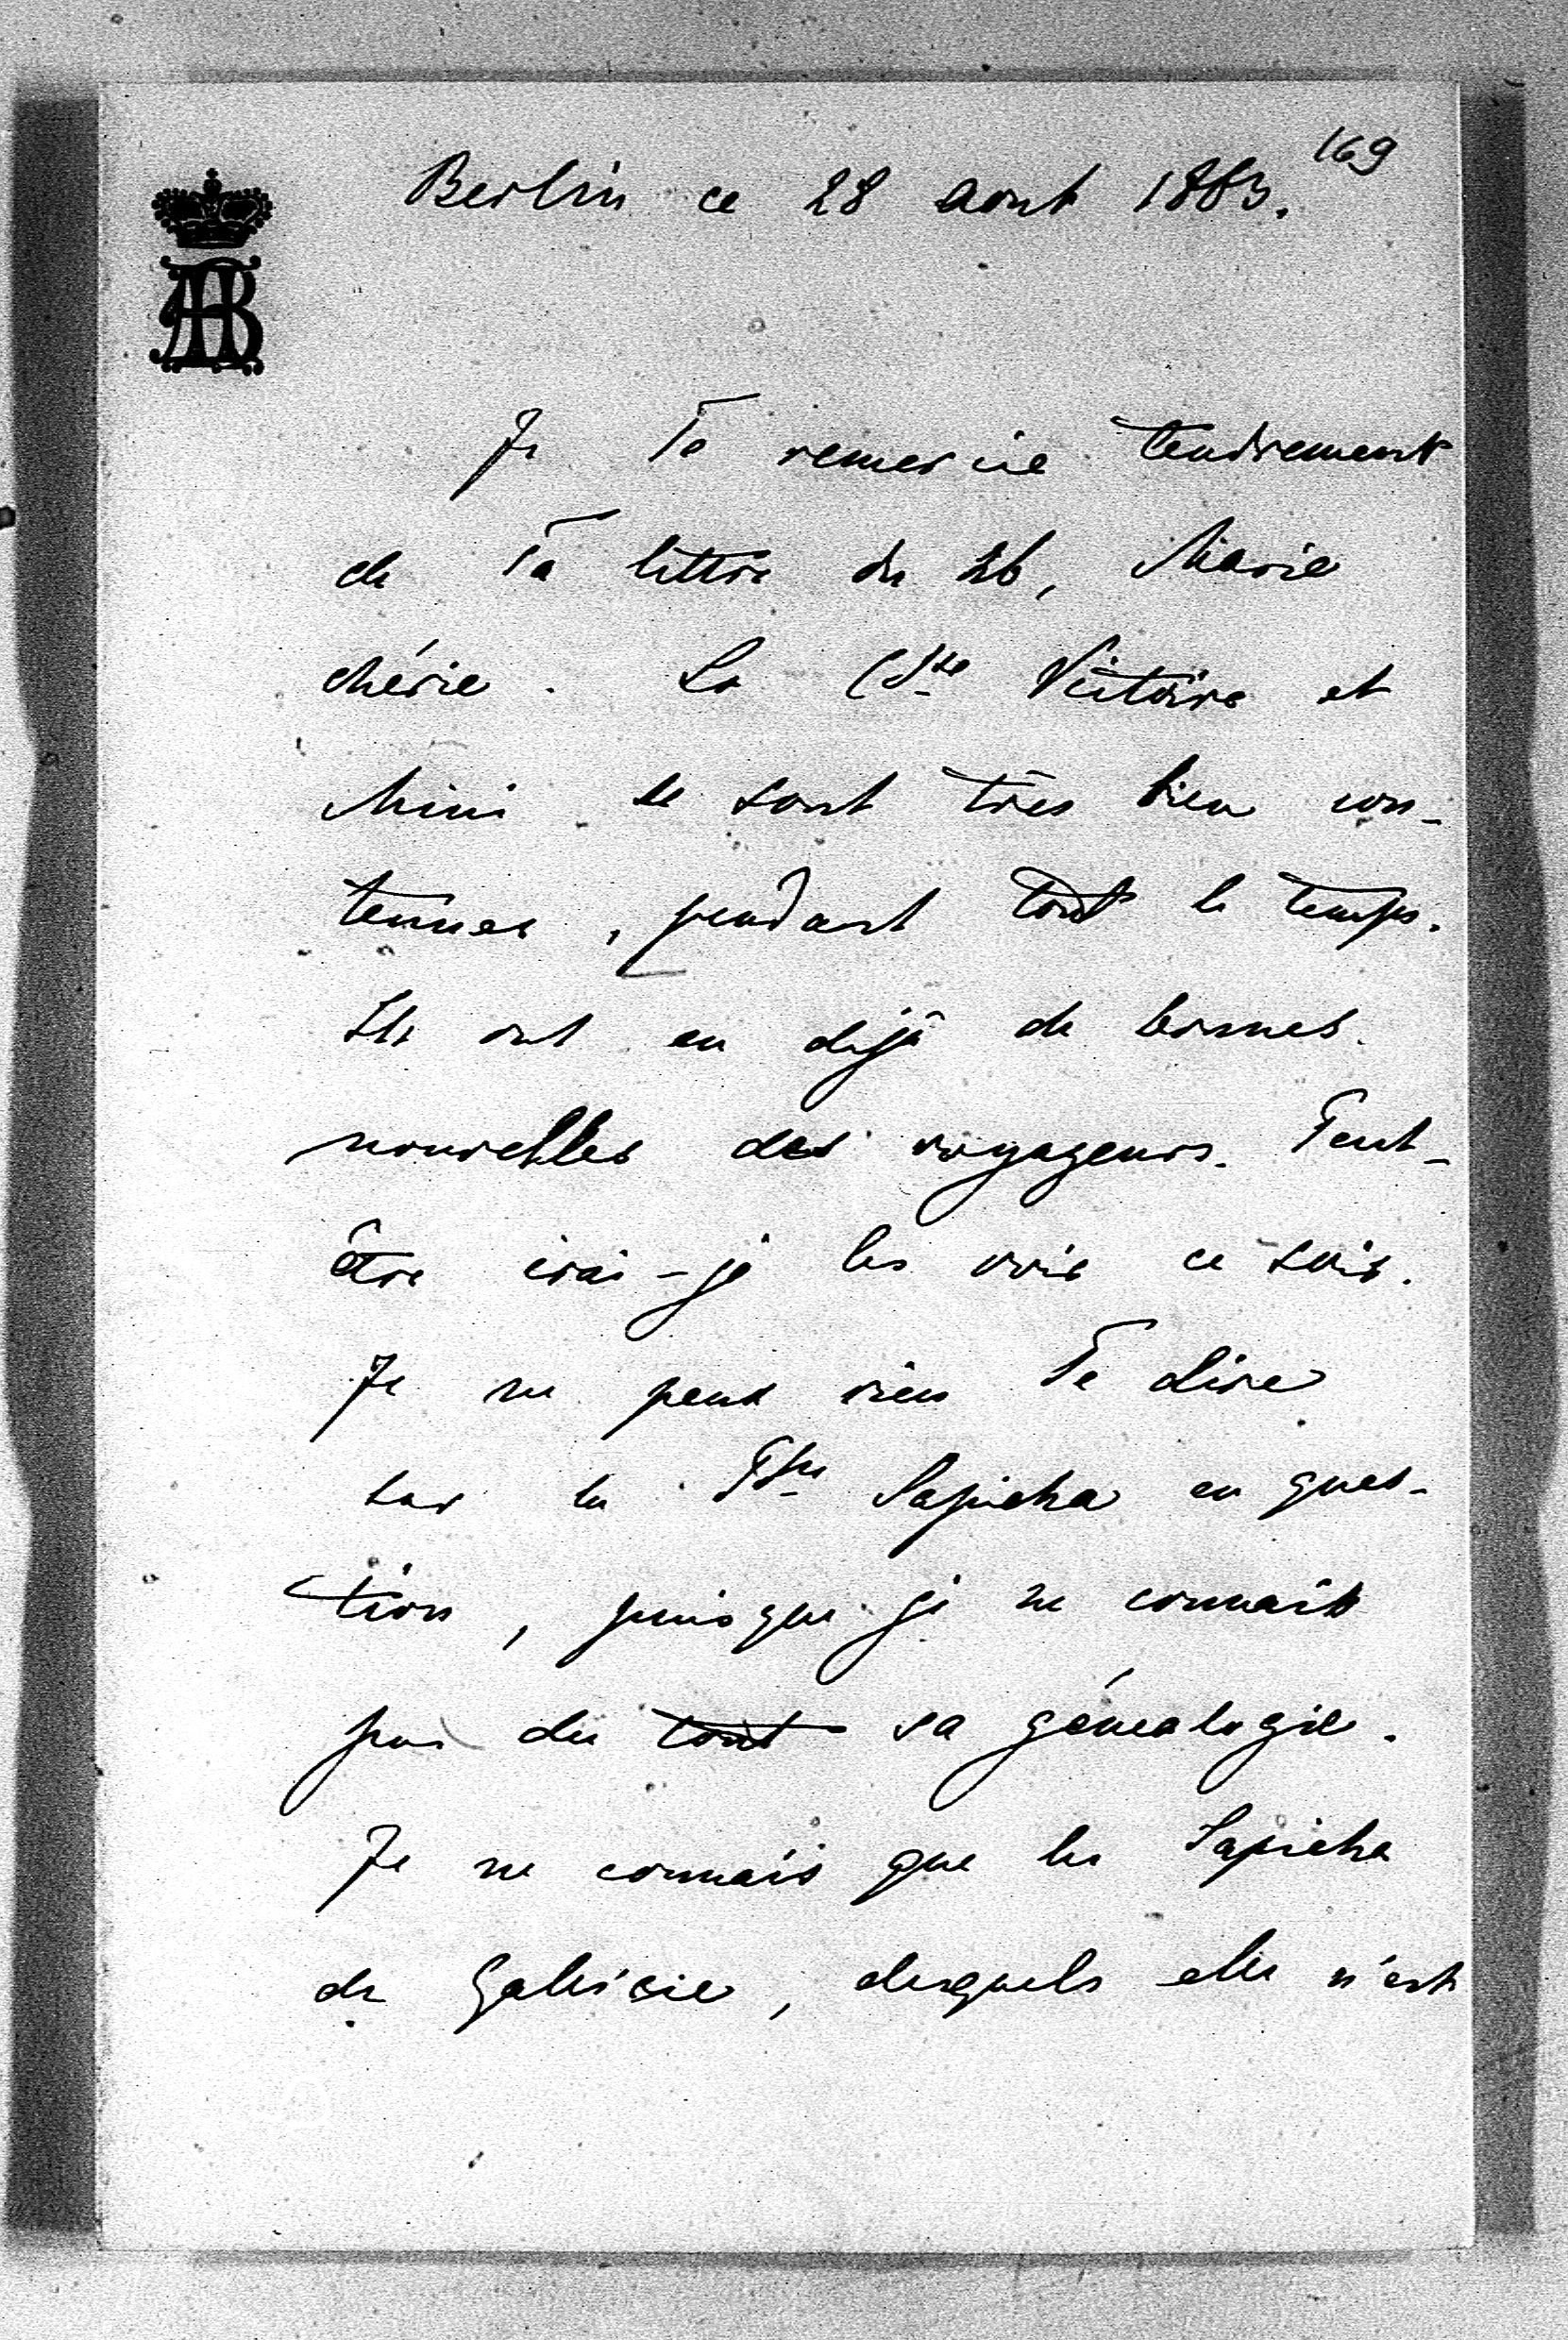 169
Berlin ce 28 aout 1883.
AB
Je Te remercie tendrement
de Ta lettre du 26, Marie
chérie. La Csse Victoire et
Mimi se sont très bien con-
tenues, pendant tout le temps.
Ils ont eu dejà de bonnes
nouvelles des voyageurs. Peut-
être irai-je les voir ce soir.
Je ne peux rien Te dire
sur la Psse Sapieha en ques-
tion, puisque je ne connais
pas du tout sa génealogie.
Je ne connais que les Sapieha
de Galicie, desquels elle n'est